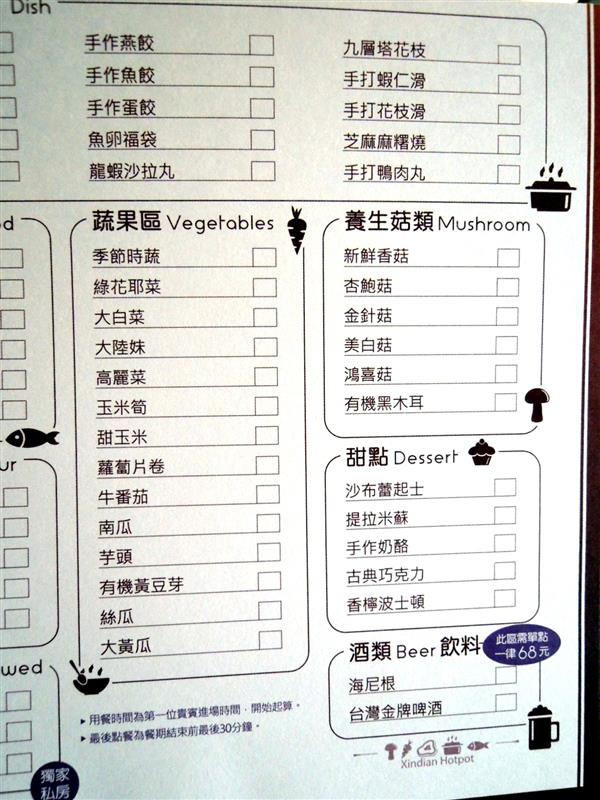 Dish
手作燕餃
手作魚餃
手作蛋餃
魚卵福袋
龍蝦沙拉丸
九層塔花枝
手打蝦仁滑
手打花枝滑
芝麻麻糬燒
手打鴨肉丸
蔬果區 Vegetables
季節時蔬
綠花耶菜
大白菜
大陸妹
高麗菜
玉米筍
甜玉米
蘿蔔片卷
牛番茄
南瓜
芋頭
有機黃豆芽
絲瓜
大黃瓜
養生菇類 Mushroom
新鮮香菇
杏鮑菇
金針菇
美白菇
鴻喜菇
有機黑木耳
甜點 Dessert
沙布蕾起士
提拉米蘇
手作奶酪
古典巧克力
香檸波士頓
酒類 Beer 飲料
此區需單點
一律68元
海尼根
台灣金牌啤酒
▸ 用餐時間為第一位貴賓進場時間，開始起算。
▸ 最後點餐為餐期結束前最後30分鐘。
獨家
私房
Xindian Hotpot